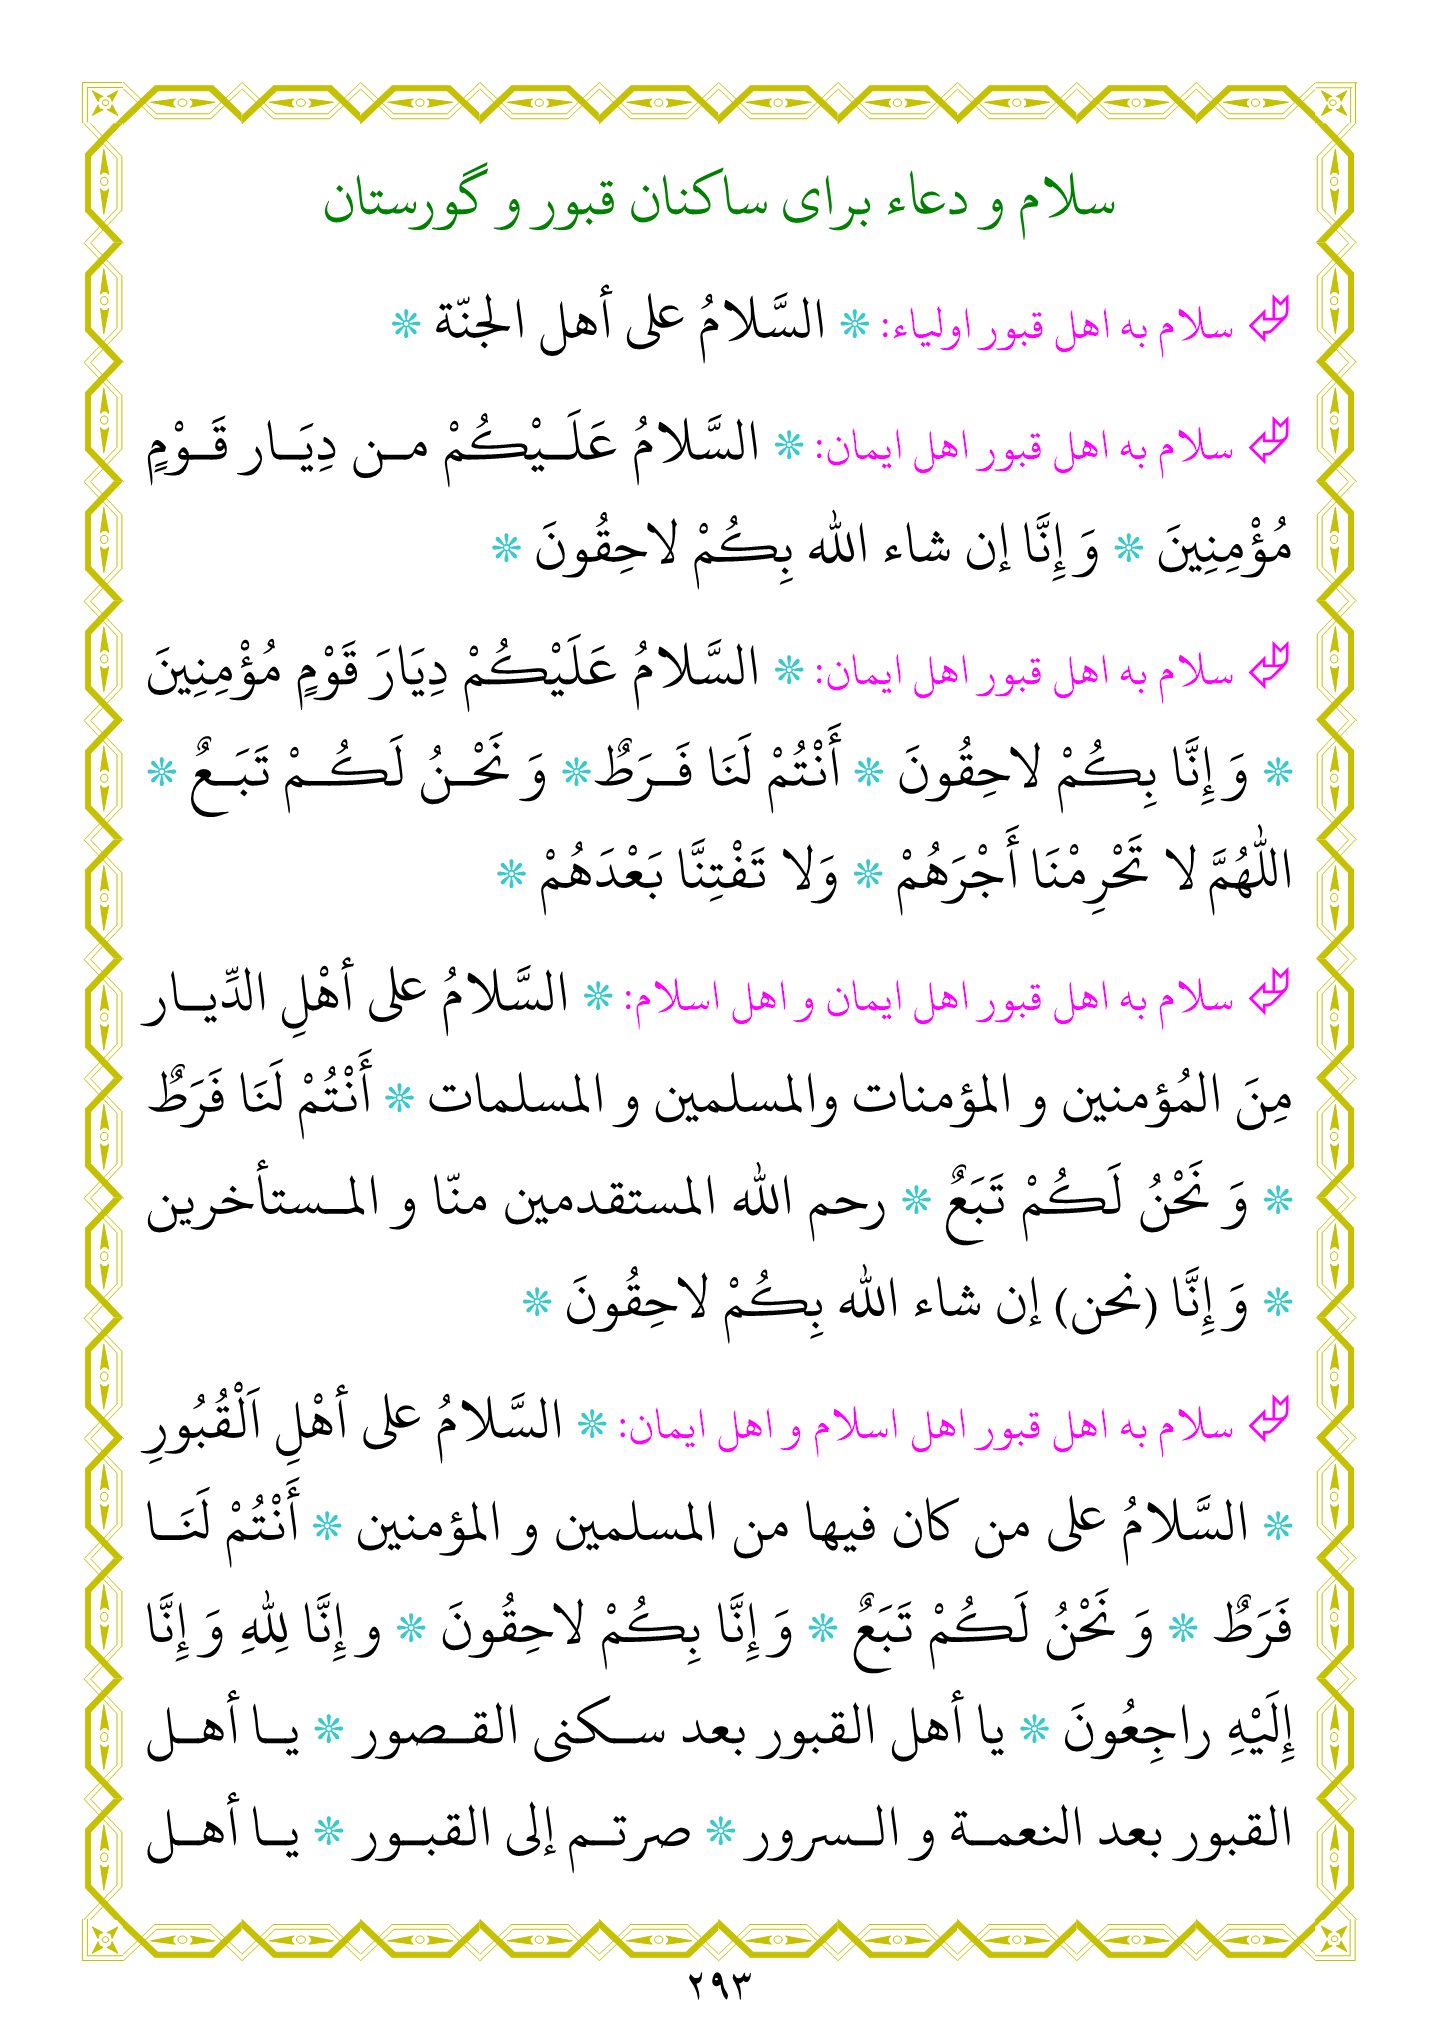 سلام و دعاء برای ساکنان قبور و گورستان
سلام به اهل قبور اولیاء: * السَّلامُ على أهل الجنّة *
سلام به اهل قبور اهل ایمان: * السَّلامُ عَلَـيْكُمْ مـن دِيَـار قَـوْمٍ
مُؤْمِنِينَ * وَ إِنَّا إن شاء الله بِكُمْ لاحِقُونَ *
سلام به اهل قبور اهل ایمان: * السَّلامُ عَلَيْكُمْ دِيَارَ قَوْمٍ مُؤْمِنِينَ
* وَ إِنَّا بِكُمْ لاحِقُونَ * أَنْتُمْ لَنَا فَـرَطٌ * وَ نَحْـنُ لَكُـمْ تَبَـعٌ *
اللّهُمَّ لا تَحْرِمْنَا أَجْرَهُمْ * وَلا تَفْتِنَّا بَعْدَهُمْ *
سلام به اهل قبور اهل ایمان و اهل اسلام: * السَّلامُ على أهْلِ الدِّيـار
مِنَ المُؤمنين و المؤمنات والمسلمين و المسلمات * أَنْتُمْ لَنَا فَرَطٌ
* وَ نَحْنُ لَكُمْ تَبَعٌ * رحم الله المستقدمين منّا و المـستأخرين
* وَ إِنَّا (نحن) إن شاء الله بِكُمْ لاحِقُونَ *
سلام به اهل قبور اهل اسلام و اهل ایمان: * السَّلامُ على أهْلِ اَلْقُبُورِ
* السَّلامُ على من كان فيها من المسلمين و المؤمنين * أَنْتُمْ لَنَـا
فَرَطٌ * وَ نَحْنُ لَكُمْ تَبَعٌ * وَ إِنَّا بِكُمْ لاحِقُونَ * و إِنَّا لِلّٰهِ وَ إِنَّا
إِلَيْهِ راجِعُونَ * يا أهل القبور بعد سـكنى القـصور * يـا أهـل
القبور بعد النعمـة و الـسرور * صرتـم إلى القبـور * يـا أهـل
٢٩٣